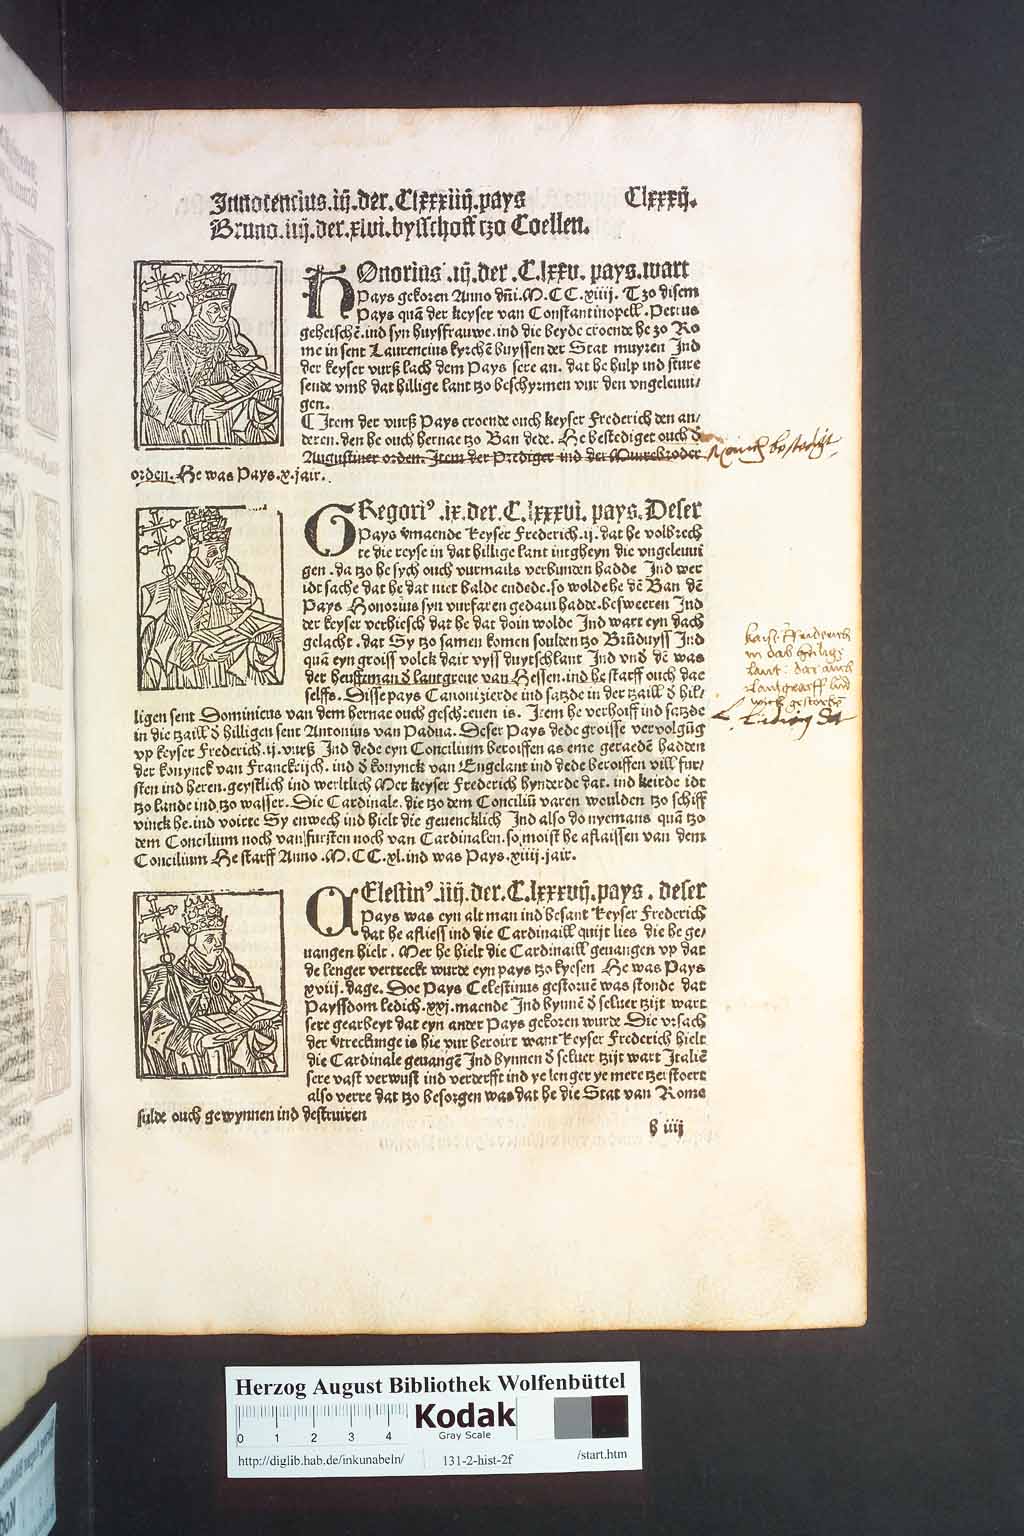 Innocencius .iij. der. Clxxxiiij. pays Clxxxij.
Bruno .iiij. der. xlvi. bysschoff tzo Coellen.
HOnorius .iij. der .C.lxxv. pays. wart
Pays gekoren Anno dñi. M.CC.xiiij. Tzo disem
Pays quā der keyser van Constantinopell. Petrus
geheischē. ind syn huysfrauwe. ind die beyde croende he zo Ro
me in sent Laurencius kyrchē buyssen der Stat muyren Ind
der keyser vurß lach dem Pays sere an. dat he hulp ind sture
sende vmb dat hillige lant tzo beschyrmen vur den vngeleuui/
gen.
C Item der vurß Pays croende ouch keyser Frederich den an/
deren. den he ouch hernae tzo Ban dede. He bestediget ouch ď
Augustiner orden. Item der Prediger ind der Mynrebroder
orden. He was Pays .x. jair.
GRegoriꝰ .ix. der. C.lxxxvi. pays. Deser
Pays vmaende Keyser Frederich .ij. dat he volbrech
te die reyse in dat hillige lant intgheyn die vngeleuui
gen. da tzo he sych ouch vurmails verbunden hadde Ind wer
idt sache dat he dat niet balde endede. so wolde he dē Ban dē
Pays Honorius syn vurfaren gedain hadde. besweeren Ind
der keyser verhiesch dat he dat doin wolde Ind wart eyn dach
gelacht. dat Sy tzo samen komen soulden tzo Brūduyss Ind
quā eyn groiss volck dair vyss duytschlant Ind vnd dē was
der heufftman ď lantgreue van Hessen. ind he starff ouch dae
selffs. Disse pays Canonizierde ind satzde in der tzaill ď hil/
ligen sent Dominicus van dem hernae ouch geschreuen is. Item he verhoiff ind satzde
in die tzaill ď hilligen sent Antonius van Padua. Deser Pays dede groisse vervolgūg
vp keyser Frederich .ij. vurß Ind dede eyn Concilium beroiffen as eme geraedē hadden
der konynck van Franckrijch. ind ď konynck van Engelant ind dede beroiffen vill fur/
sten ind heren. geystlich ind werltlich Mer keyser Frederich hynderde dat. ind keirde idt
tzo lande ind tzo wasser. Die Cardinale. die tzo dem Conciliū varen woulden tzo schiff
vinck he. ind voirte Sy enwech ind hielt die geuencklich Ind also do nyemans quā tzo
dem Concilium noch van fursten noch van Cardinalen. so moist he aflaissen van dem
Concilium He starff Anno .M.CC.xl. ind was Pays .xiiij. jair.
CElestinꝰ .iiij. der. C.lxxxvij. pays. deser
Pays was eyn alt man ind besant Keyser Frederich
dat he afliess ind die Cardinaill quijt lies die he ge/
uangen hielt. Mer he hielt die Cardinaill geuangen vp dat
de lenger vertreckt wurde eyn pays tzo kyesen He was Pays
xviij. dage. Doe Pays Celestinus gestoruē was stonde dat
Payssdom ledich. xxj. maende Ind bynnē ď seluer tzijt wart
sere gearbeyt dat eyn ander Pays gekoren wurde Die vrsach
der vtreckinge is hie vur beroirt want Keyser Frederich hielt
die Cardinale geuangē Ind bynnen ď seluer tzijt wart Italiē
sere vast verwust ind verderfft ind ye lenger ye mere tzerstoert
also verre dat tzo besorgen was dat he die Stat van Rome
sulde ouch gewynnen ind destruiren
h iiij
Mönch bestedigt
kais. Friderich
in das heilige
lant: dar auch
Lantgraff Lud
wick gestorben
Herzog August Bibliothek Wolfenbüttel
0 1 2 3 4
Kodak
Gray Scale
http://diglib.hab.de/inkunabeln/ 131-2-hist-2f /start.htm